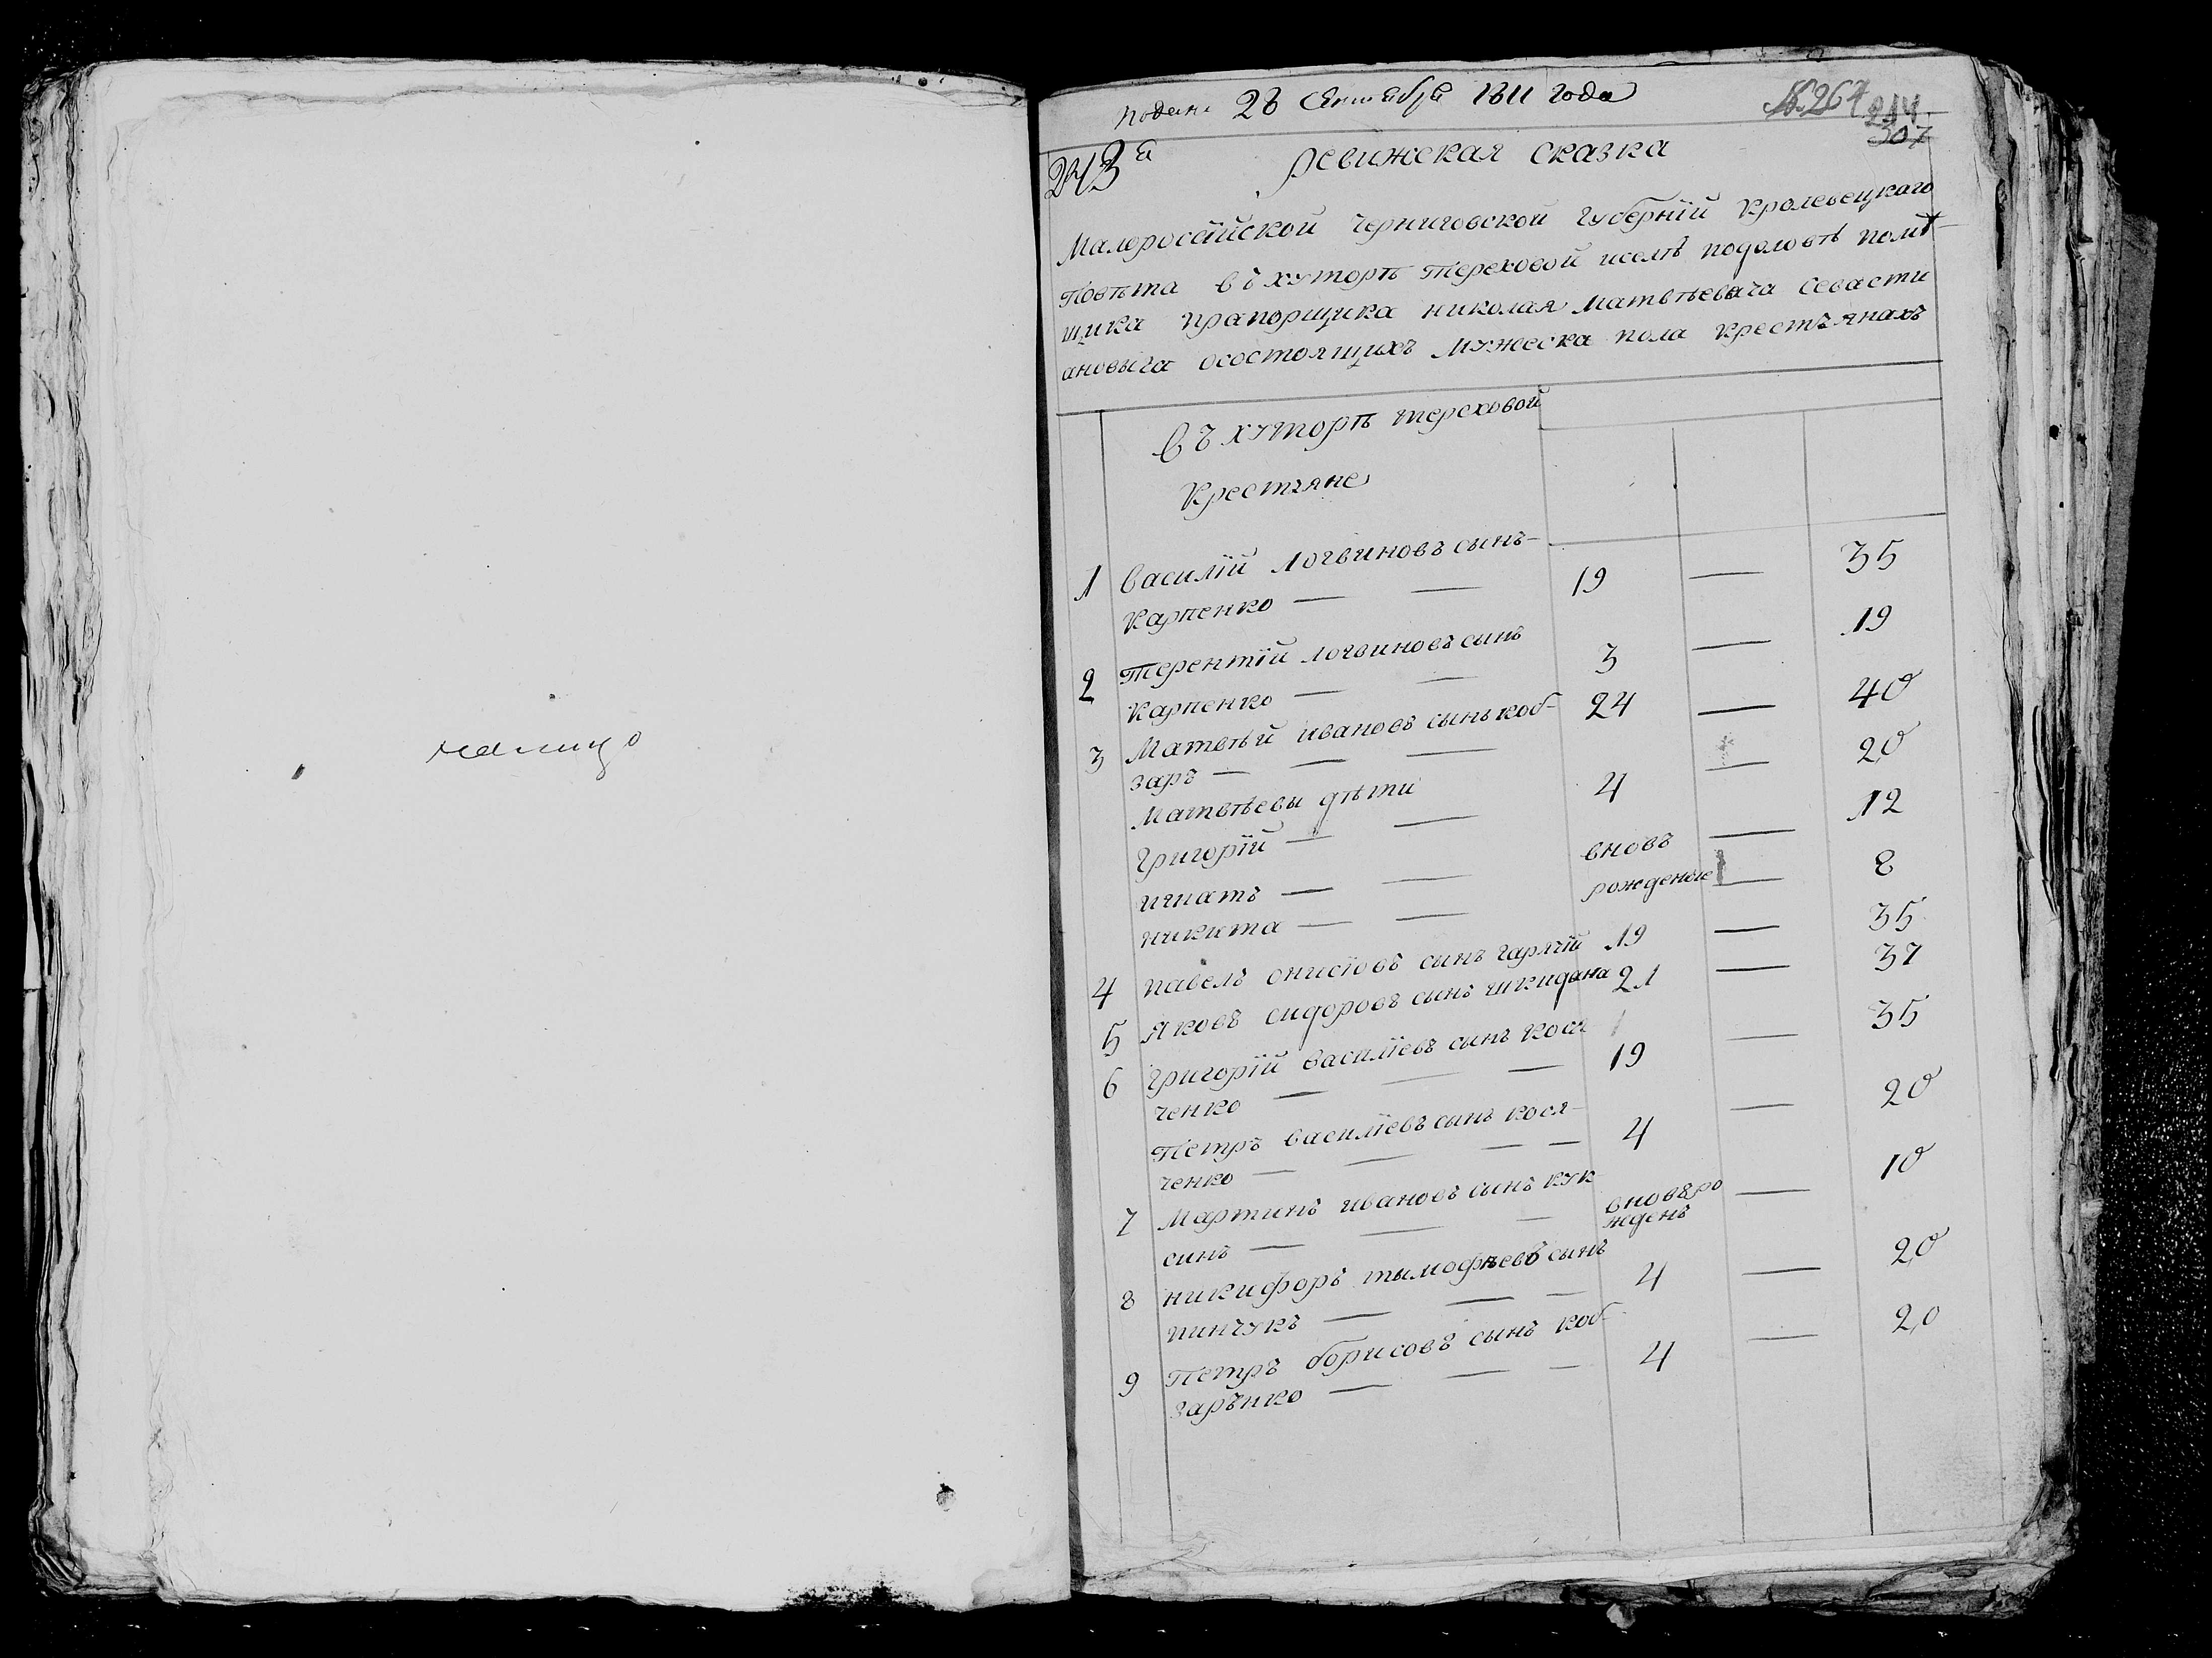 налицо
подана 28 Сентября 1811 года
№ 267 214
307
243я Ревижская сказка
Малоросiйской Черниговской Губернiи Кролевецкаго
Повѣта въ хуторѣ Тереховой иселѣ подоловѣ помѣ-
щика прапорщика николая матвѣевича Севасти
ановыча осостоящихъ мужеска пола крестъянахъ
Въ хуторѣ тереховой
Крестъяне
1 Василiй логвиновъ сынъ-
Карпенко — — 19 — 35
2 Терентiй логвиновъ сынъ
Карпенко — — 3 — 19
3 Матвѣй ивановъ сынъ коб- 24 — 40
заръ — — —
Матвѣевы дѣти
Григорiй — — 4 — 20
игнатъ — — вновъ — 12
никита — — рожденые — 8
4 павелъ онисiовъ синъ гарячiй 19 — 35
5 Яковъ сидоровъ сынъ шкидина 21 — 37
6 Григорiй василiевъ сынъ кося
ченко — — — 19 — 35
Петръ василiевъ сынъ кося-
ченко — — — 4 — 20
7 Мартинъ ивановъ сынъ кук
синъ — — — вновъро
жденъ — 10
8 никифоръ тымофѣевъ сынъ
пинчукъ — — — 4 — 20
9 Петръ борисовъ сынъ коб-
зарънко — — — 4 — 20